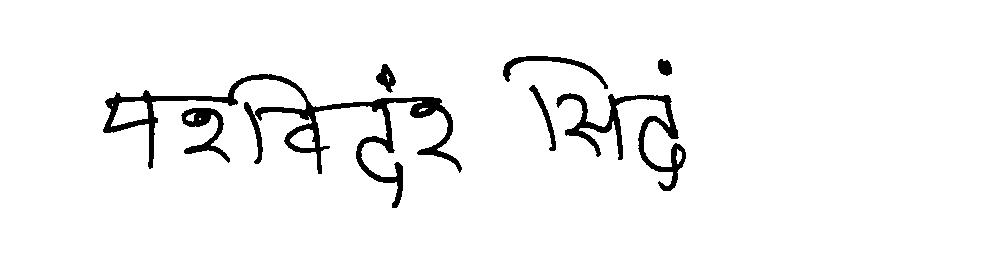 परविदंर सिदं